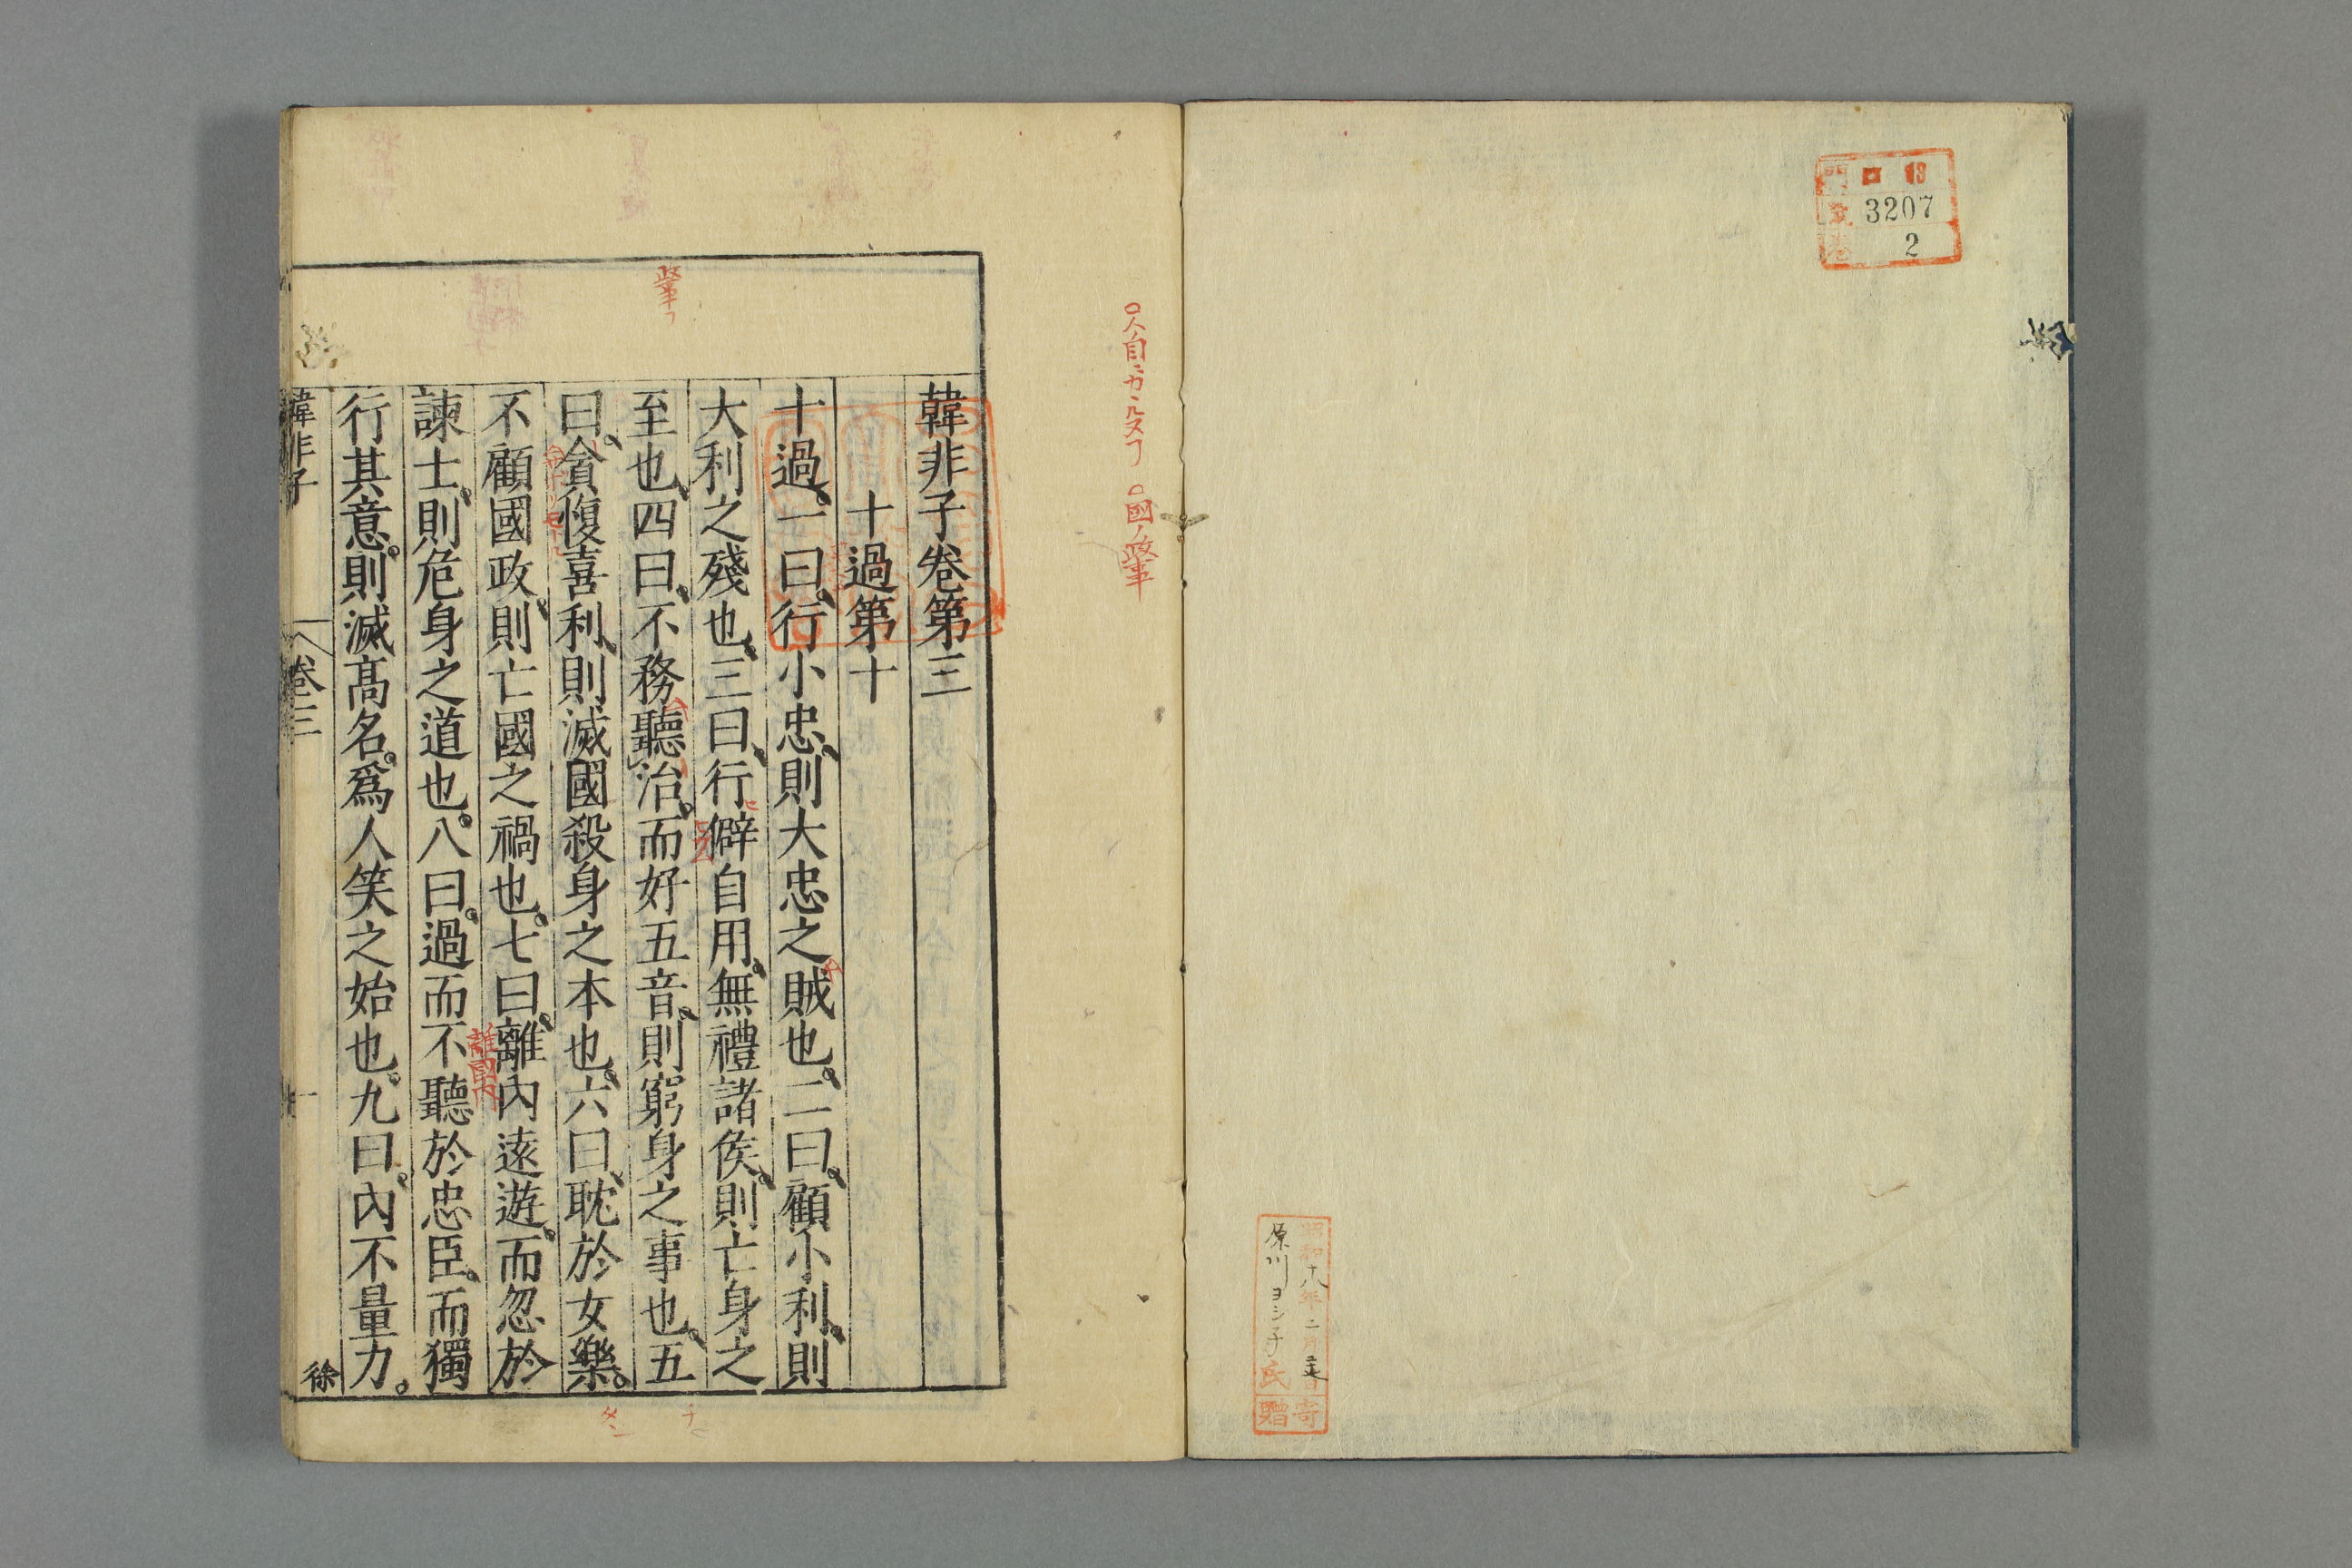 門 ロ 13
號 3207
卷 2
昭和十八年二月
原川ヨシ子氏寄贈
韓非子卷第三
十過第十
十過、一曰、行小忠、則大忠之賊也。二曰、顧小利、則
大利之殘也、三曰、行僻自用、無禮諸侯、則亡身之
至也、四曰、不務聽治、而好五音、則窮身之事也、五
曰、貪愎喜利、則滅國殺身之本也、六曰、耽於女樂。
不顧國政、則亡國之禍也。七曰、離內遠遊、而忽於
諫士、則危身之道也。八曰。過而不聽於忠臣、而獨
行其意。則滅高名。爲人笑之始也。九曰。內不量力。
徐
韓非子
卷三
一